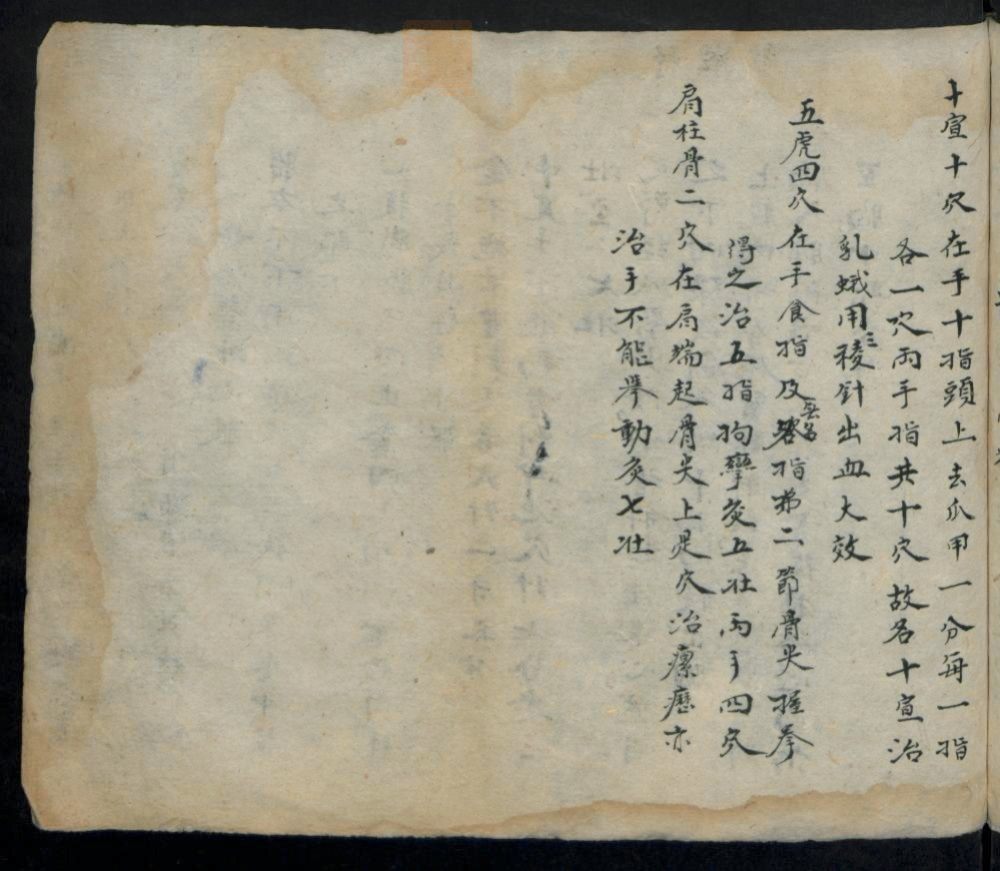 十宣十穴在手十指頭上去爪甲一分每一指
各一穴兩手指共十穴故名十宣治
乳蛾用三稜針出血大效
五虎四穴在手食指及無名指第二節骨尖握拳
得之治五指拘攣灸五壮兩手四穴
肩柱骨二穴在肩端起骨尖上是穴治瘰癧亦
治手不能舉動灸七壮